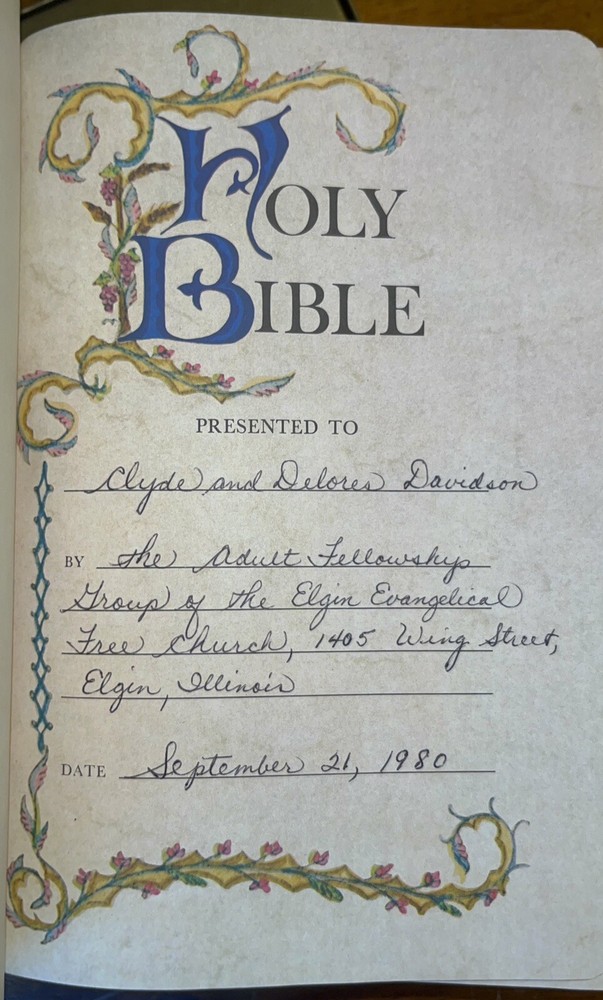 HOLY
BIBLE
PRESENTED TO
Clyde and Delores Davidson
BY the Adult Fellowship
Group of the Elgin Evangelical
Free Church, 1405 Wing Street,
Elgin, Illinois
DATE September 21, 1980